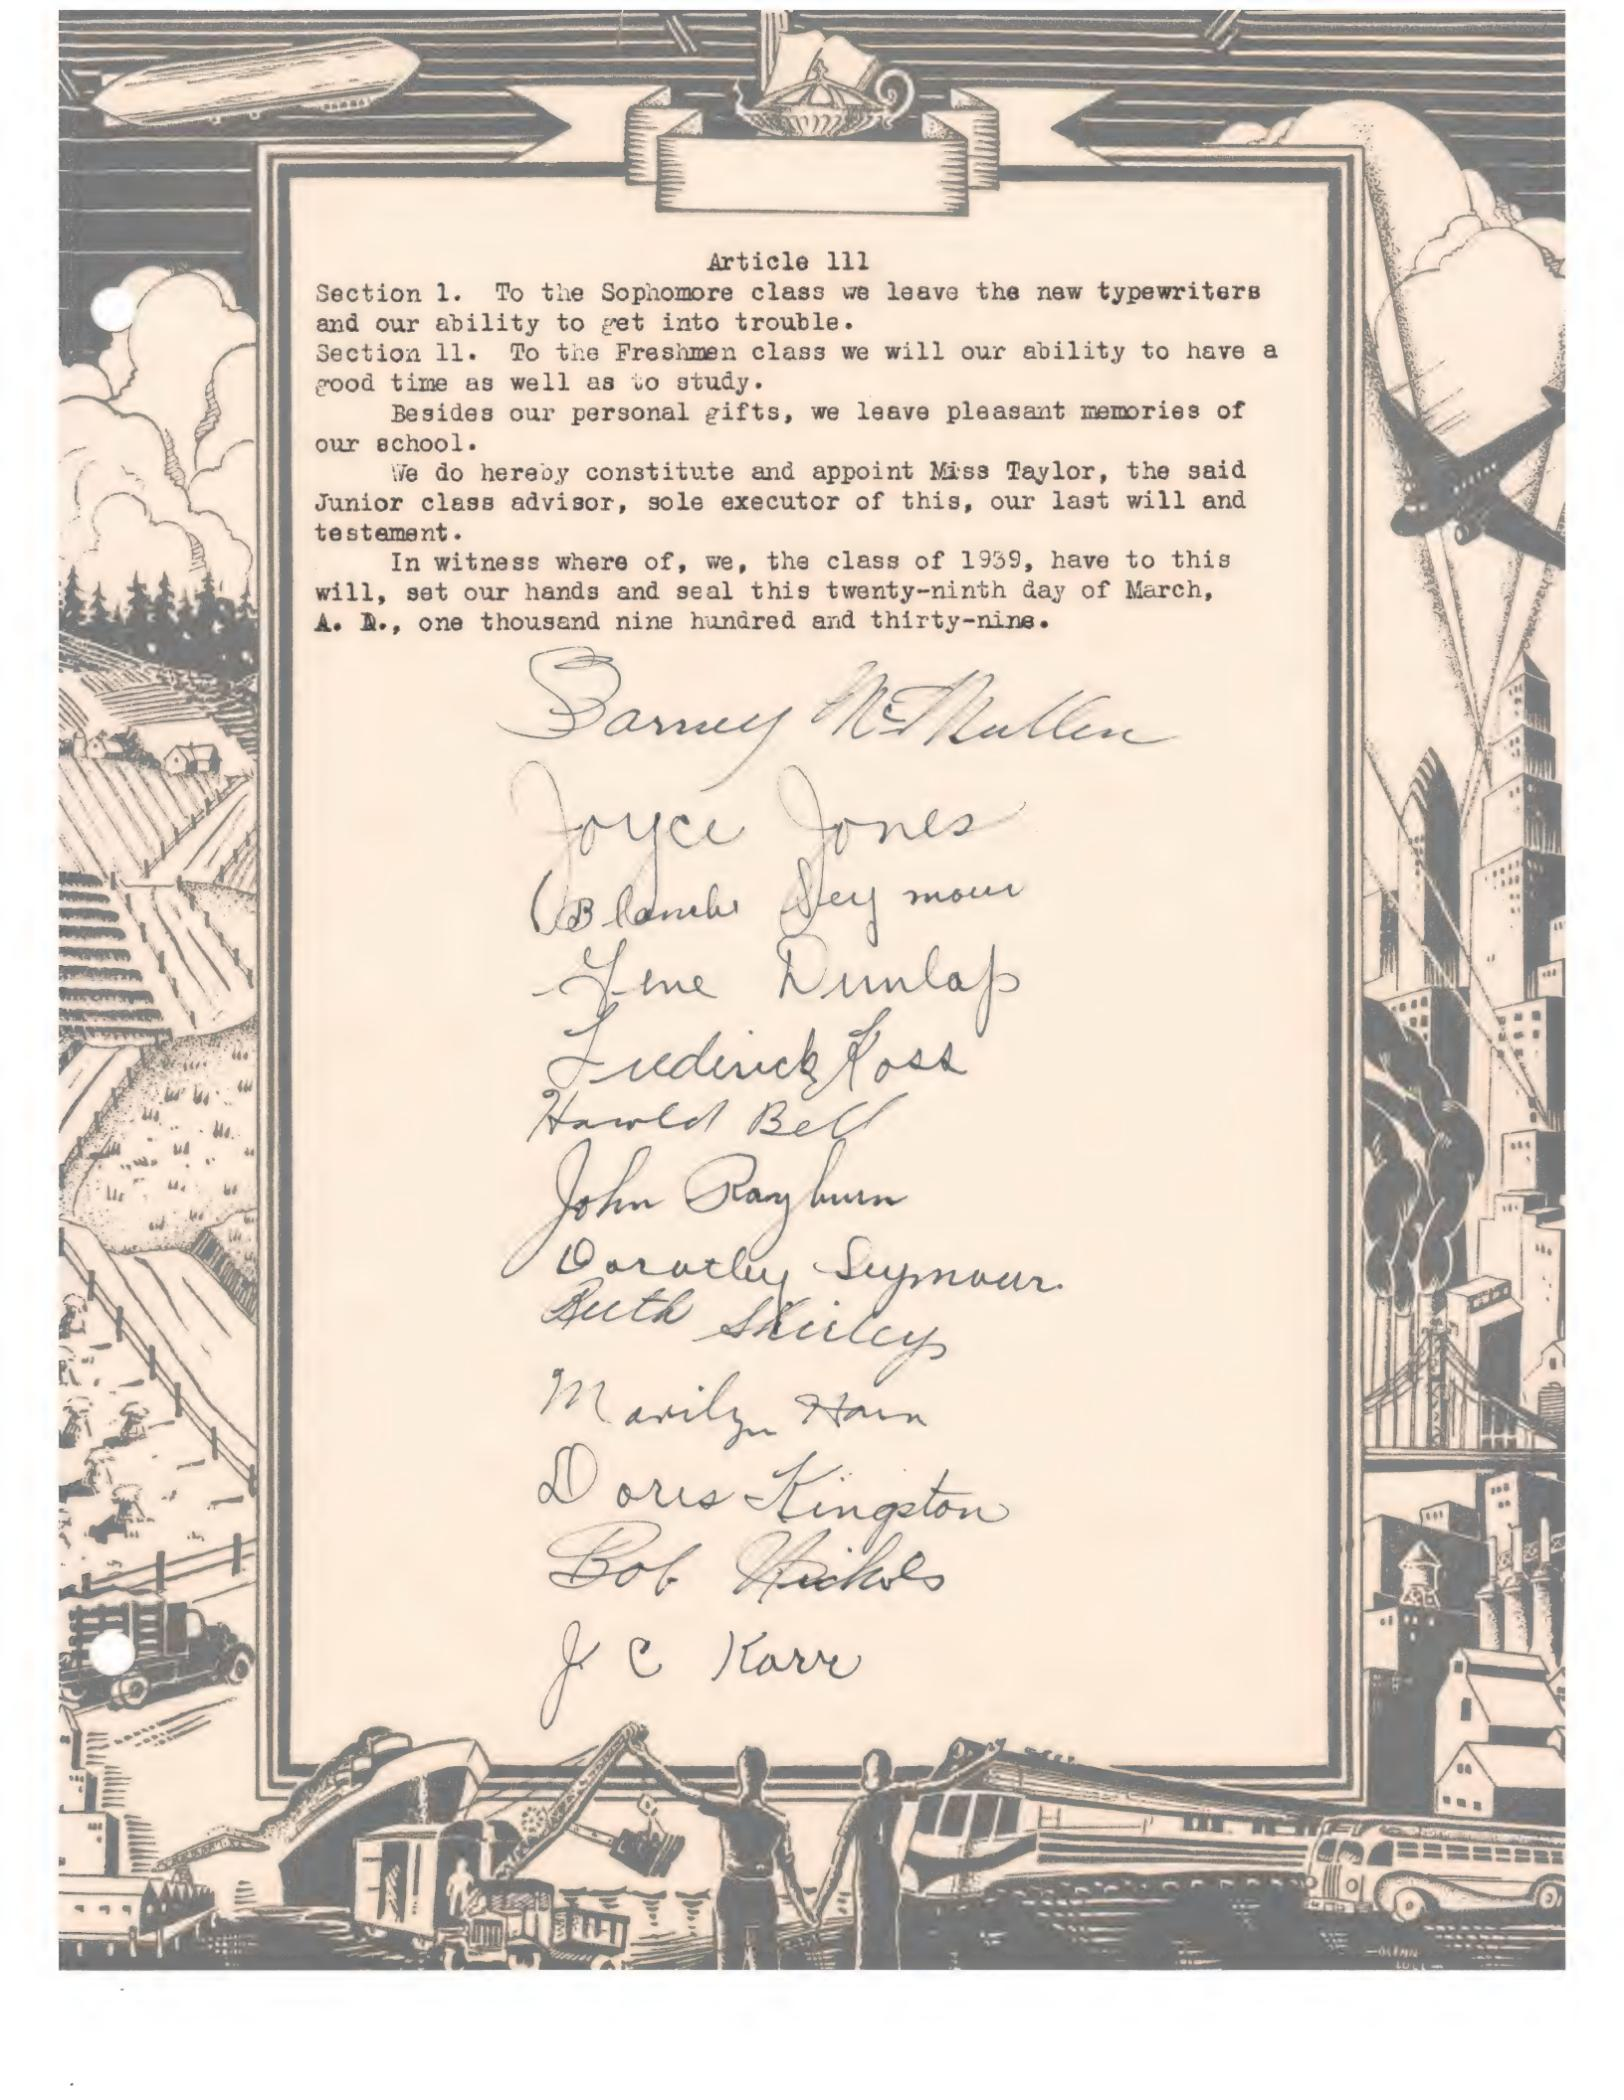 Article 111
Section 1. To the Sophomore class we leave the new typewriters
and our ability to get into trouble.
Section 11. To the Freshmen class we will our ability to have a
good time as well as to study.
Besides our personal gifts, we leave pleasant memories of
our school.
We do hereby constitute and appoint Miss Taylor, the said
Junior class advisor, sole executor of this, our last will and
testament.
In witness where of, we, the class of 1939, have to this
will, set our hands and seal this twenty-ninth day of March,
A. D., one thousand nine hundred and thirty-nine.
Barney McMullen
Joyce Jones
Blanche Seymour
Gene Dunlap
Frederick Ross
Harold Bell
John Rayburn
Dorothy Seymour.
Ruth Shirley
Marilyn
Doris Kingston
Bob Nichols
J C Karr